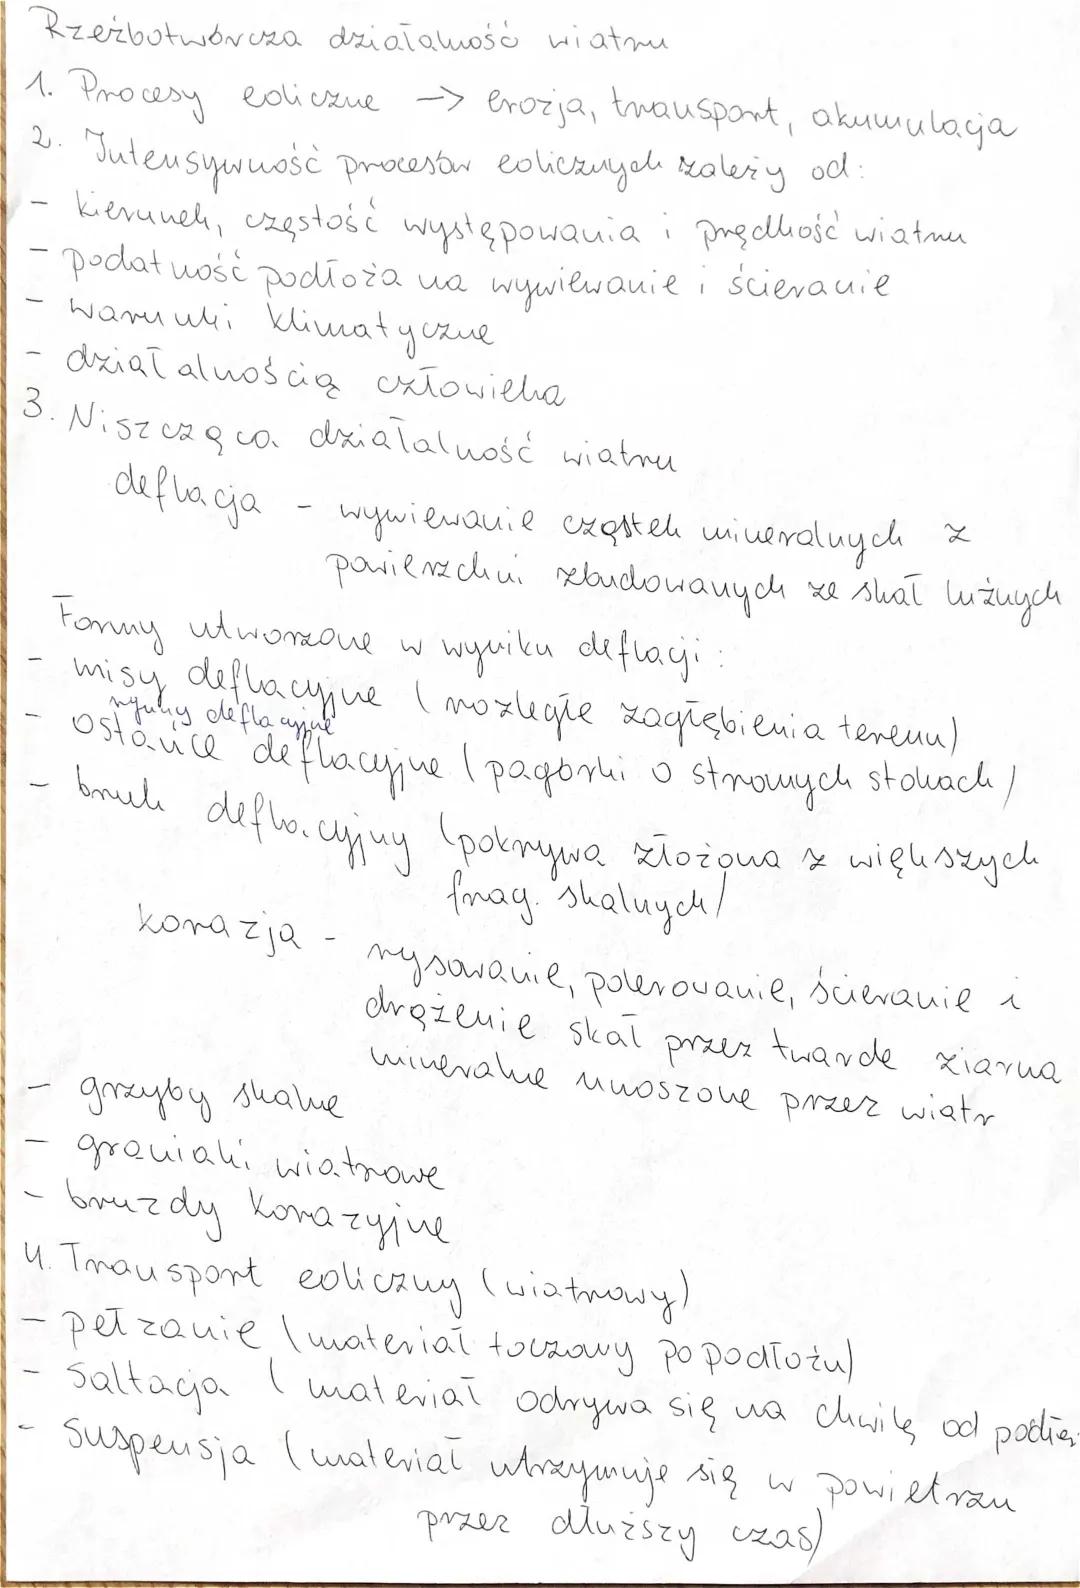 Rzeźbotwórcza działalność wiatru
1. Procesy eoliczne -> erozja, transport, akumulacja
2. Intensywność procesów eolicznych zależy od:
- kierunek, częstość występowania i prędkość wiatru
- podatność podłoża na wywiewanie i ścieranie
- warunki klimatyczne
- działalnością człowieka
3. Niszcząca działalność wiatru
deflacja - wywiewanie cząstek mineralnych z
powierzchni zbudowanych ze skał luźnych
Formy utworzone w wyniku deflacji:
- misy deflacyjne (rozległe zagłębienia terenu)
rynny deflacyjne
- ostańce deflacyjne (pagórki o stromych stokach)
- bruk deflacyjny (pokrywa złożona z większych
frag. skalnych)
korazja - rysowanie, polerowanie, ścieranie i
drążenie skał przez twarde ziarna
mineralne unoszone przez wiatr
- grzyby skalne
- graniaki wiatrowe
- bruzdy korazyjne
4. Transport eoliczny (wiatrowy)
- pełzanie (materiał toczony po podłożu)
- Saltacja (materiał odrywa się na chwilę od
- Suspensja (materiał utrzymuje się w powietrzu
przez dłuższy czas)